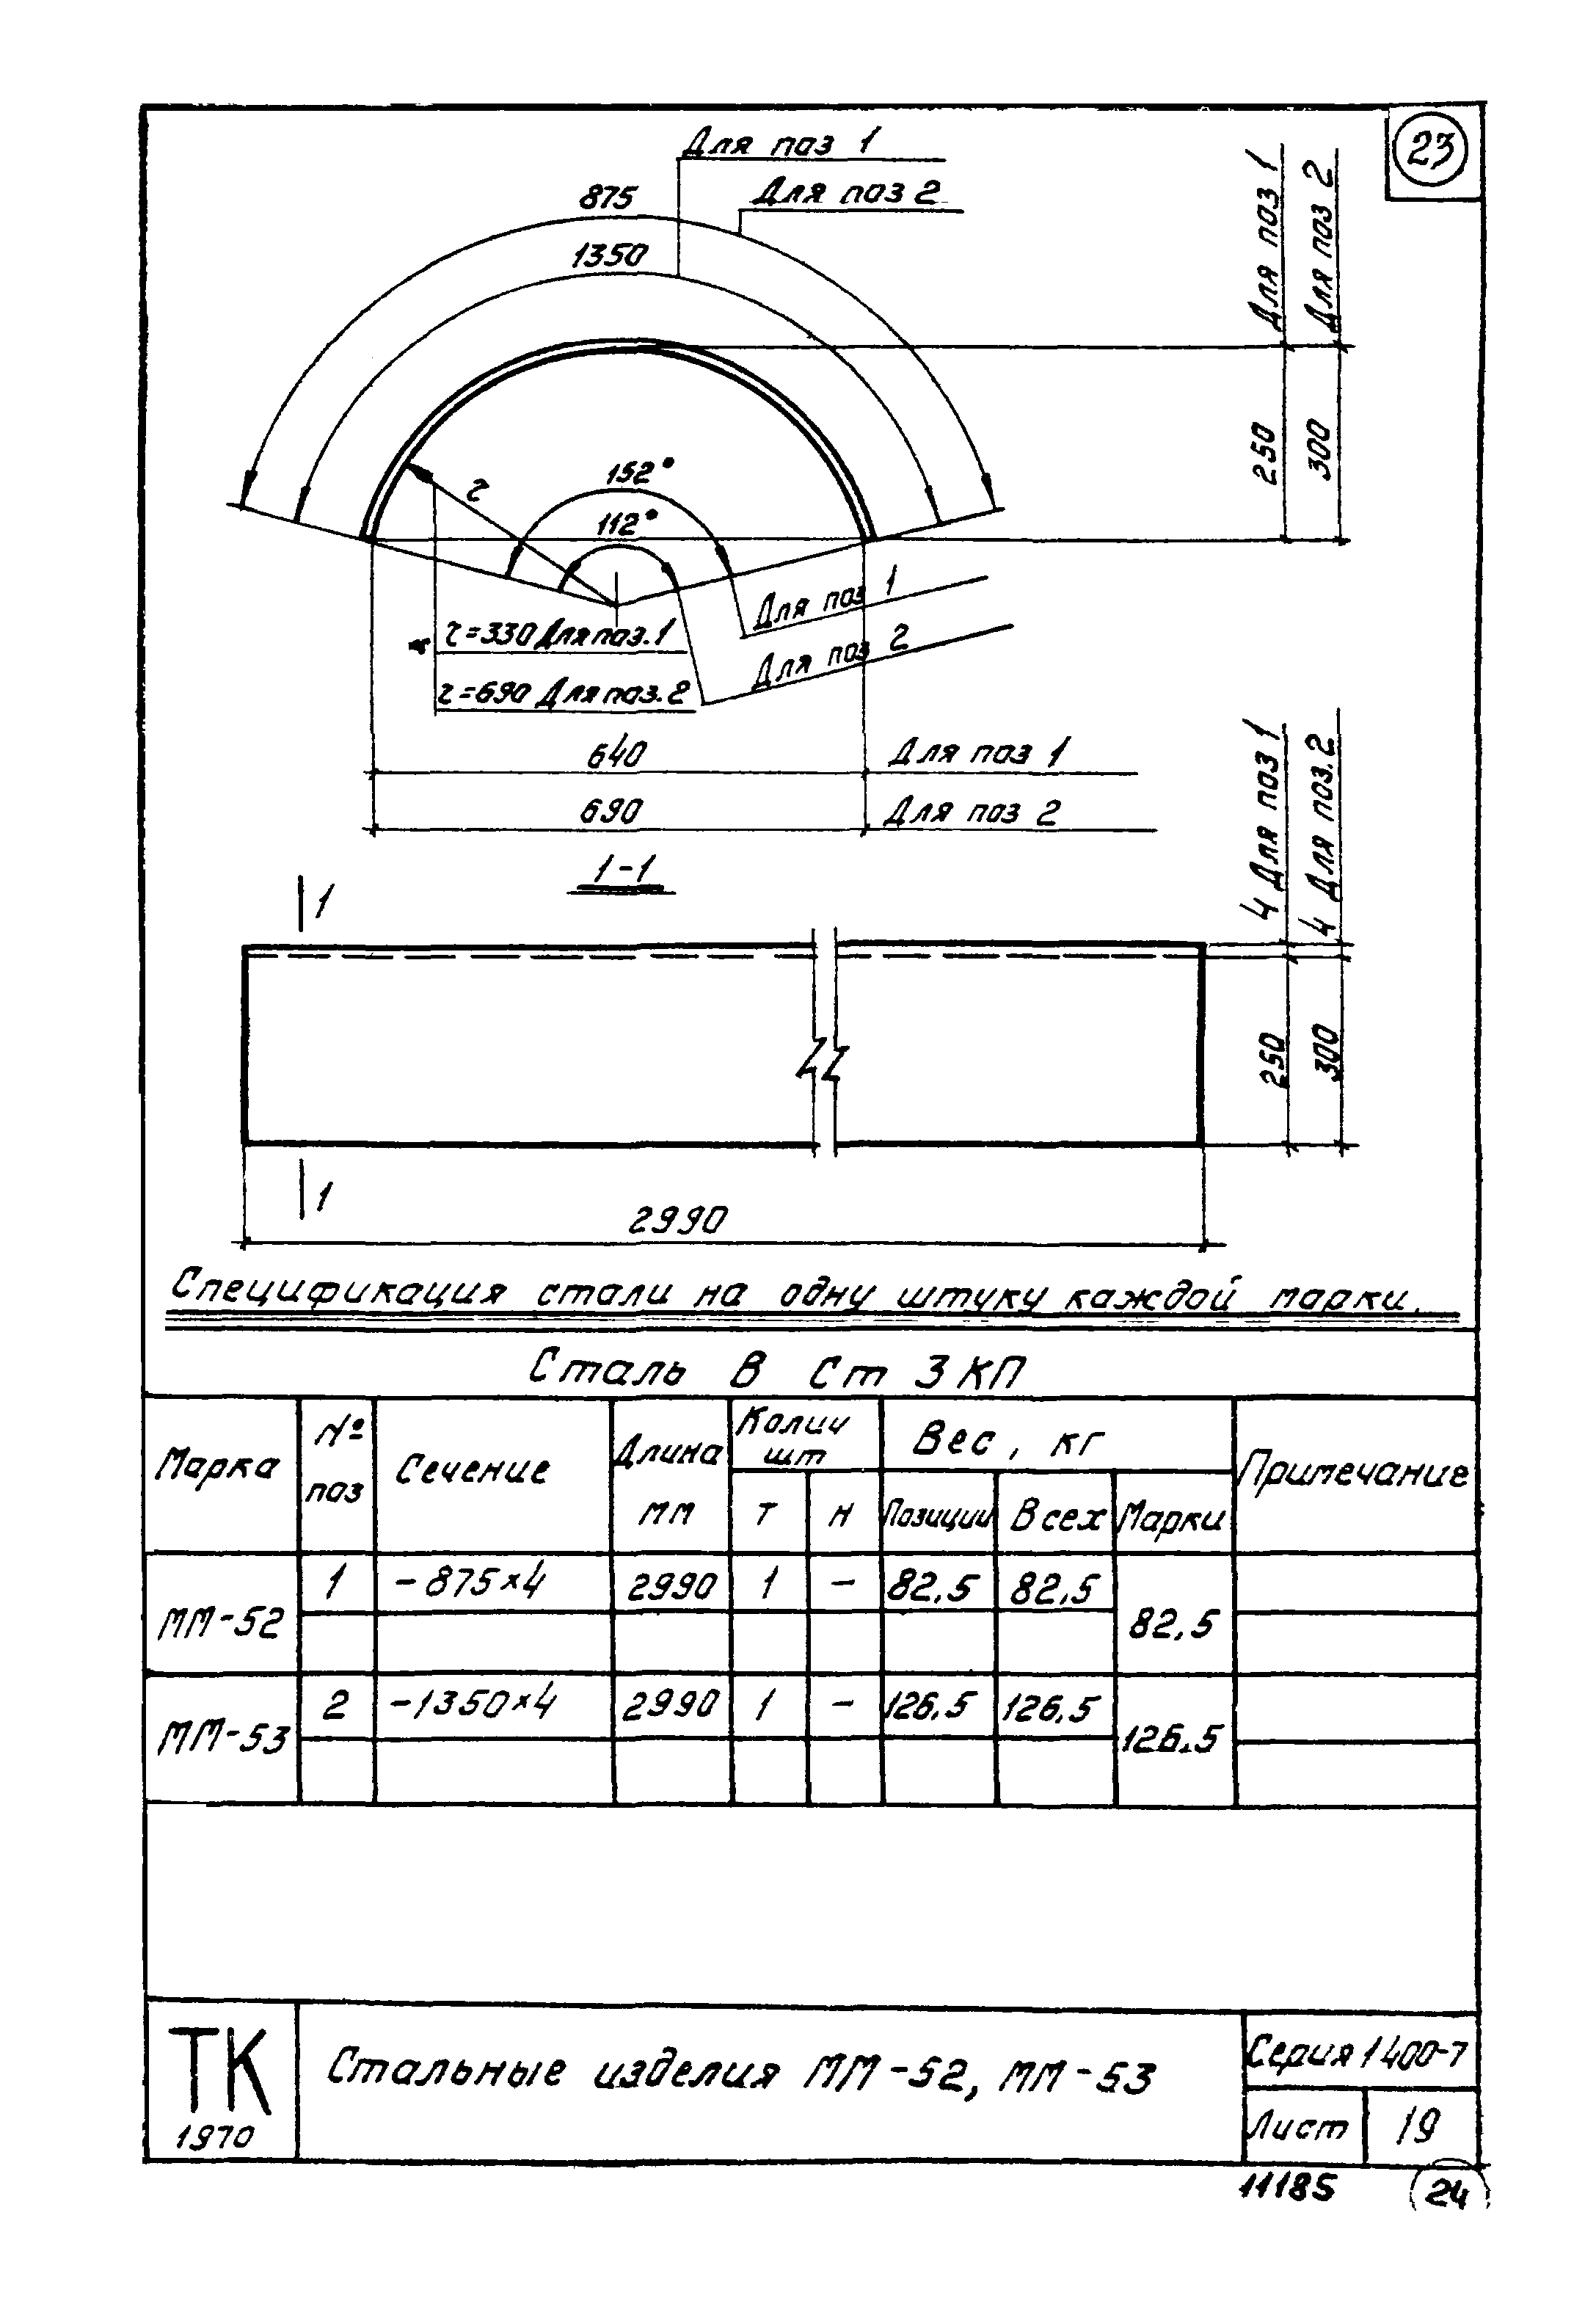 23
Для поз 1
Для поз 2
875
1350
Для поз 1
Для поз 2
250
300
152°
112°
r
Для поз 1
Для поз 2
r=330 Для поз.1
r=690 Для поз.2
640 Для поз 1
690 Для поз 2
1-1
4 Для поз 1
4 Для поз.2
1
250
300
1
2990
Спецификация стали на одну штуку каждой марки.
Сталь В Ст 3 КП
Марка № поз Сечение Длина мм Колич шт Вес, кг Примечание
т н Позиции Всех Марки
ММ-52 1 -875×4 2990 1 - 82,5 82,5 82,5
ММ-53 2 -1350×4 2990 1 - 126,5 126,5 126.5
ТК
1970
Стальные изделия ММ-52, ММ-53
Серия 1400-7
Лист 19
11185
24